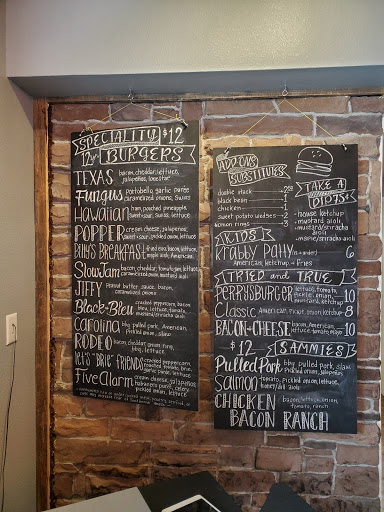 SPECIALITY $12
12oz BURGERS
TEXAS bacon, cheddar, lettuce,
jalapeños, tomato
Fungus portobello, garlic purée
caramelized onions, Swiss
Hawaiian ham, pineapple,
Swiss, lettuce
POPPER cream cheese, jalapeños,
pickled onion, lettuce
Billy's BREAKFAST fried egg, bacon, lettuce,
maple aioli, American
SlowJam bacon, cheddar, tomato jam, lettuce
caramelized onion, mustard aioli
JIFFY Peanut butter sauce, bacon,
caramelized onions
Black+Bleu cracked peppercorn, bacon,
bleu, lettuce, tomato,
mustard/sriracha aioli
Carolina bbq pulled pork, American,
pickled onion, slaw
RODEO bacon, cheddar, onion ring,
bbq, lettuce
let's "BRIE" FRIENDS cracked peppercorn,
roasted tomato, brie,
garlic puree, lettuce
Five Alarm cream cheese, jalapeños,
habanero purée, celery
pickled onion, lettuce
ADD-ONS
SUBSTITUTES
double stack
black bean 1
chicken 1
sweet potato wedges 2
onion rings 3
TAKE A
DIP
- house ketchup
- mustard aioli
- mustard/sriracha
aioli
- maple/sriracha aioli
KIDS
Krabby Patty (is a burger) 6
American, ketchup + fries
TRIED and TRUE
PERRYSBURGER lettuce, tomato,
pickle, onion, 10
mustard, ketchup
Classic American, Pickle, onion, ketchup 8
BACON+CHEESE bacon, American,
lettuce, onion, mayo 10
$12 SAMMIES
Pulled Pork bbq pulled pork, slaw
pickled onion, jalapeños
Salmon tomato, pickled onion, lettuce,
CHICKEN bacon, lettuce, onion,
tomato, ranch
BACON RANCH